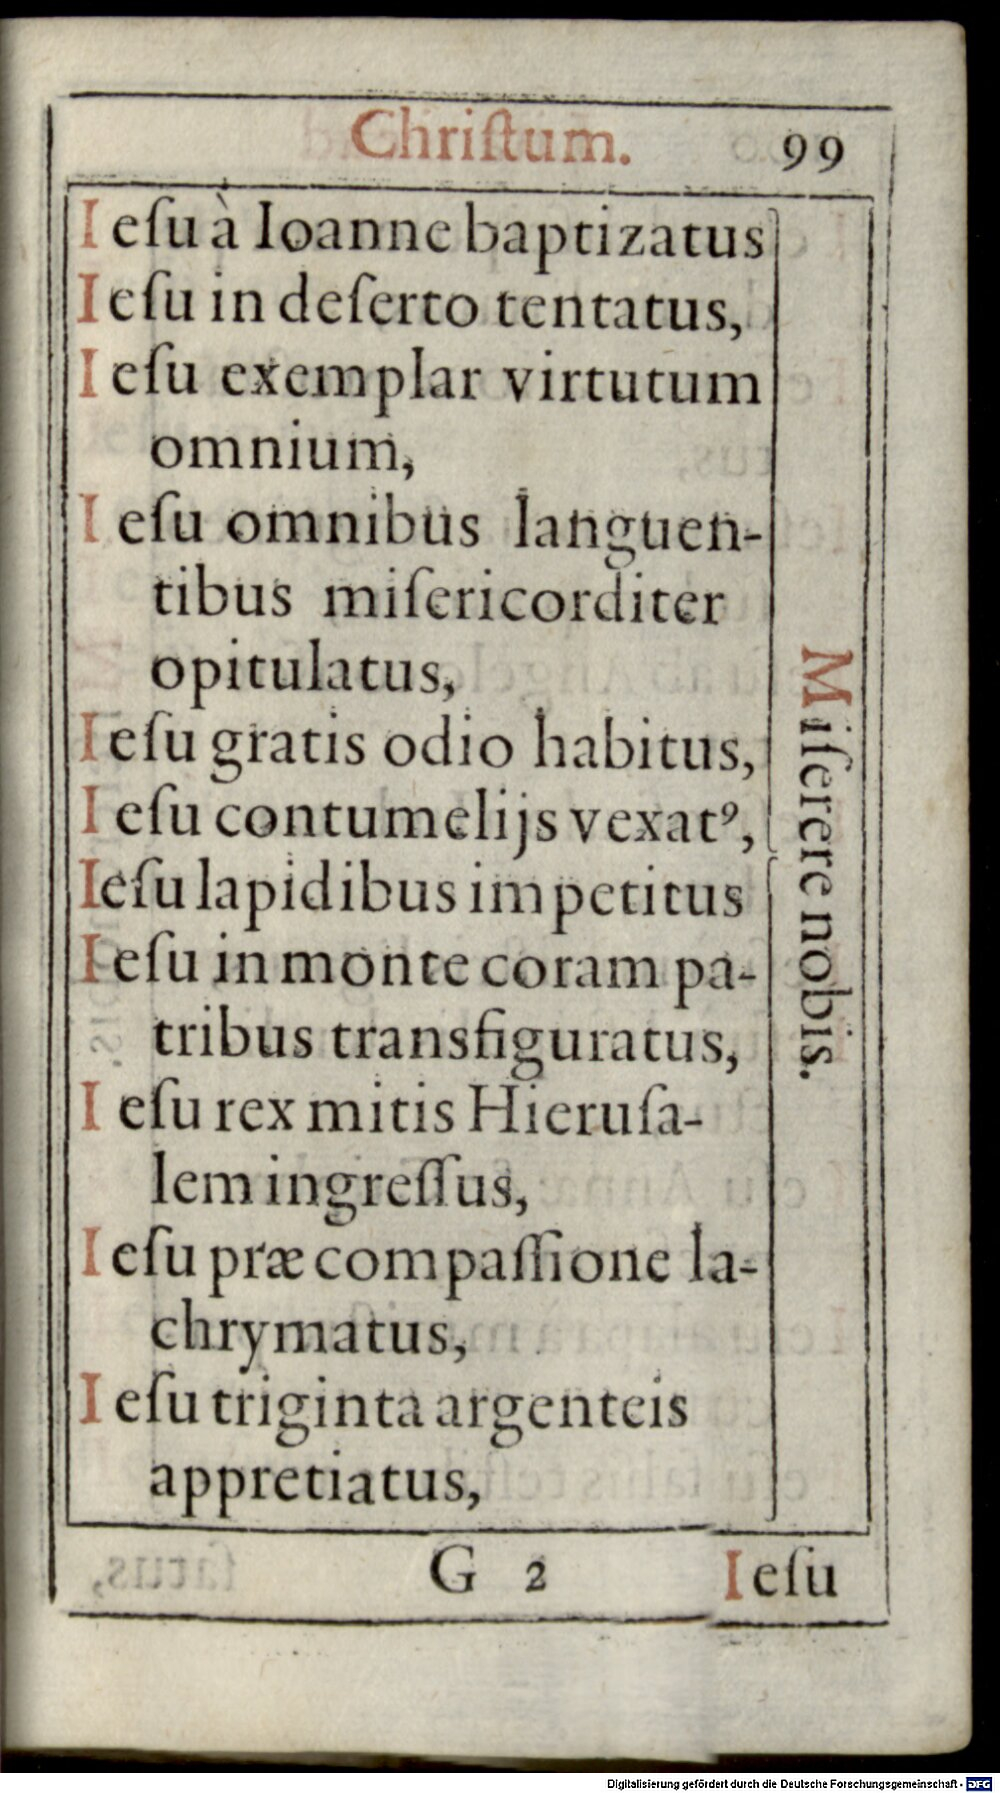 Chriſtum. 99
Ieſu à Ioanne baptizatus
Ieſu in deſerto tentatus,
Ieſu exemplar virtutum
omnium,
Ieſu omnibus languen-
tibus miſericorditer
opitulatus,
Ieſu gratis odio habitus,
Ieſu contumelijs vexatꝰ,
Ieſu lapidibus impetitus
Ieſu in monte coram pa-
tribus transfiguratus,
Ieſu rex mitis Hieruſa-
lem ingreſſus,
Ieſu præ compaſſione la-
chrymatus,
Ieſu triginta argenteis
appretiatus,
Miſerere nobis.
G 2 Ieſu
Digitalisierung gefördert durch die Deutsche Forschungsgemeinschaft - DFG